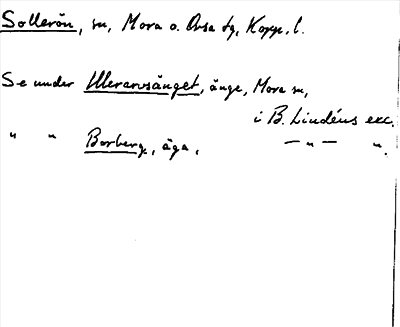 Sollerön, sn, Mora o. Orsa tg, Kopp. l.
Se under Ulleransänget, änge, Mora sn,
i B. Lindéns exc.
" " Borberg, äga, — " — ".